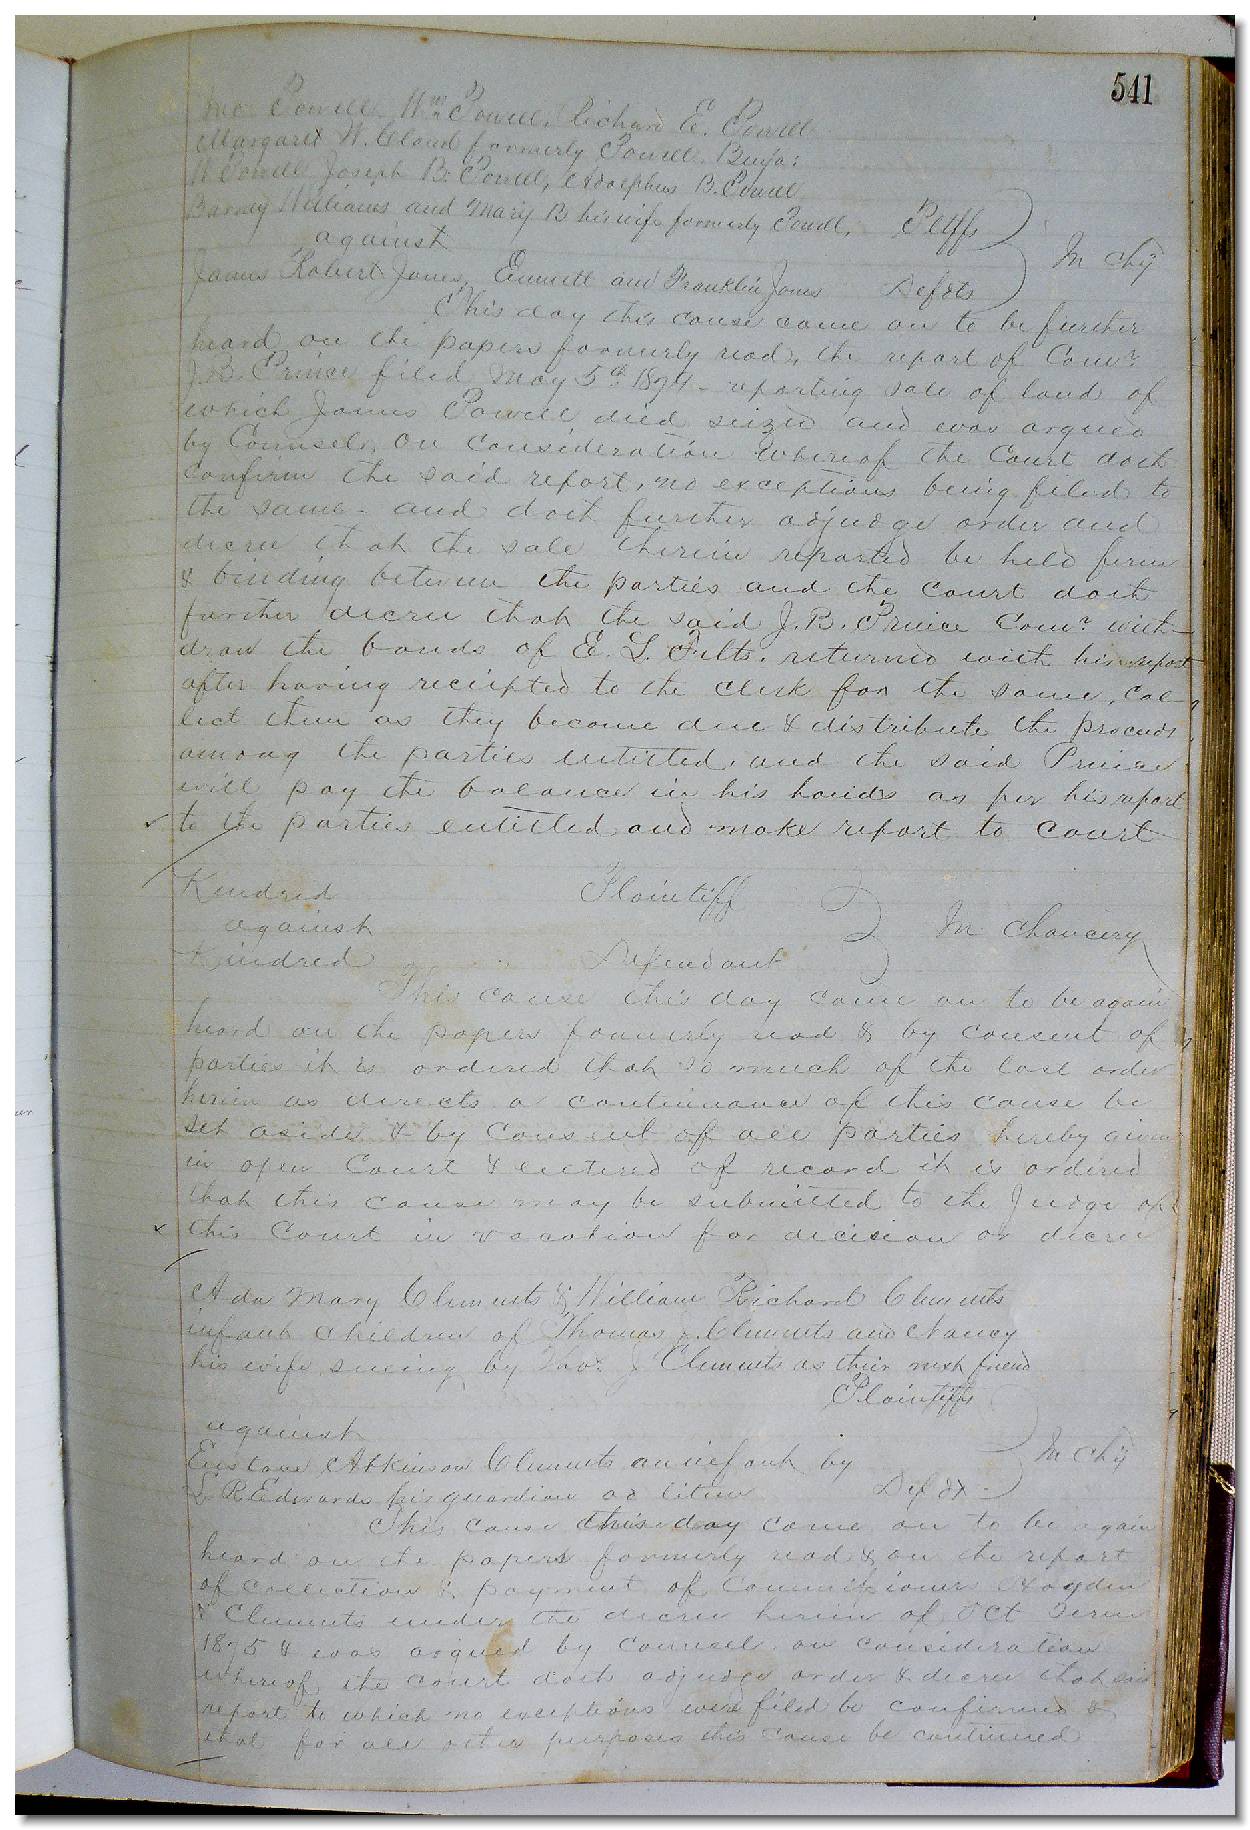 541
Powell, Wm Powell, Richard E. Powell
Margaret W. Cloud formerly Powell. Benja:
W Powell Joseph B. Powell, Adolphus B. Powell
Barney Williams and Mary B his wife formerly Powell, Pltffs
against In Chy
James Robert Jones, Emmett and Franklin Jones Defdts
This day this cause came on to be further
heard on the papers formerly read, the report of Comr
J.B. Prince filed May 5th 1874 - reporting sale of land of
which James Powell died seized and was argued
by Counsel, On consideration whereof the Court doth
confirm the said report, no exceptions being filed to
the same - and doth further adjudge order and
decree that the sale therein reported be held firm
& binding between the parties and the court doth
further decree that the said J. B. Prince Comr. with-
draw the bonds of E. L. Felts. returned with his report
after having receipted to the clerk for the same, col-
lect them as they become due & distribute the proceeds
among the parties entitled, and the said Prince
will pay the balance in his hands as per his report
to the parties entitled and make report to Court
Kindred Plaintiff
against In Chancery
Kindred Defendant
This cause this day came on to be again
heard on the papers formerly read & by consent of
parties it is ordered that so much of the last order
herein as directs a continuance of this cause be
set aside & by consent of all parties hereby given
in open Court & entered of record it is ordered
that this cause may be submitted to the Judge of
this Court in vacation for decision or decree
Ada Mary Clements & William Richard Clements
infant children of Thomas J. Clements and Nancy
his wife sueing by Thos. J Clements as their next friend
Plaintiffs
against In Chy
Atkinson Clements an infant by
Edwards his guardian ad litem Defdt -
This cause this day came on to be again
heard on the papers formerly read & on the report
of collection & payment of Commissioners
& Clements under the decree herein of Oct Term
1875 & was argued by counsel. on consideration
whereof the court doth adjudge order & decree that said
report to which no exceptions were filed be confirmed &
that for all other purposes this cause be continued